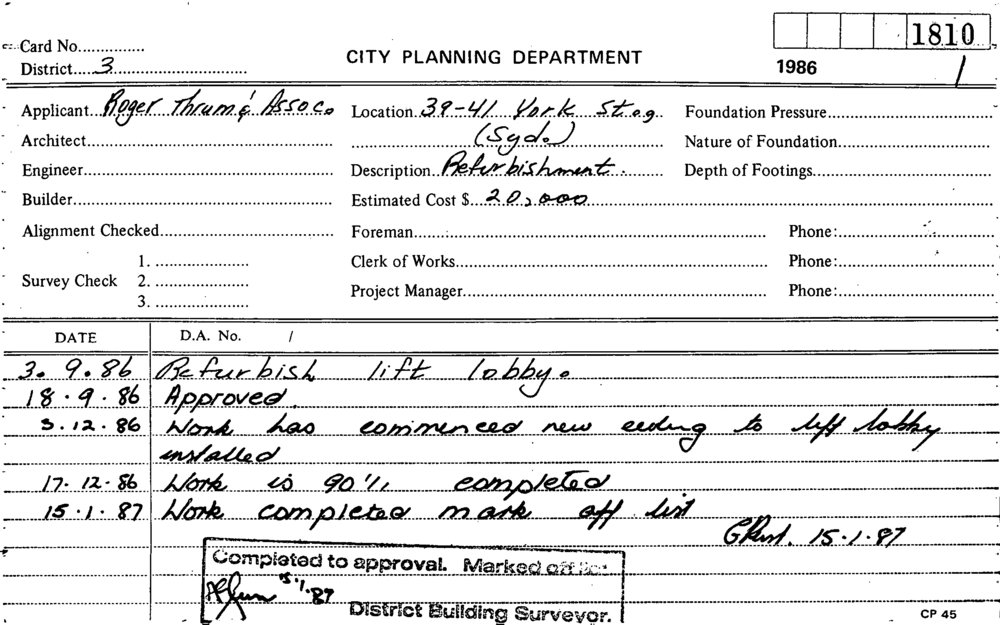 Card No...............
1810
District.....3...............................
CITY PLANNING DEPARTMENT
1986
1
Applicant...Roger Thrum & Assoc.
Location.39-41 York St.
Foundation Pressure...............................
Architect...............................
(Syd.)
Nature of Foundation...............................
Engineer...............................
Description..Refurbishment.
Depth of Footings...............................
Builder...............................
Estimated Cost $...20,000...............................
Alignment Checked...............................
Foreman...............................
Phone:...............................
1. ......................
Clerk of Works...............................
Phone:...............................
Survey Check 2. ......................
Project Manager...............................
Phone:...............................
3. ......................
DATE D.A. No. /
3.9.86 Refurbish lift lobby.
18.9.86 Approved.
3.12.86 Work has commenced new ceiling to lift lobby
installed
17.12.86 Work is 90% completed
15.1.87 Work completed mark off list
15.1.87
Completed to approval. Marked off
15.1.87
District Building Surveyor.
CP 45